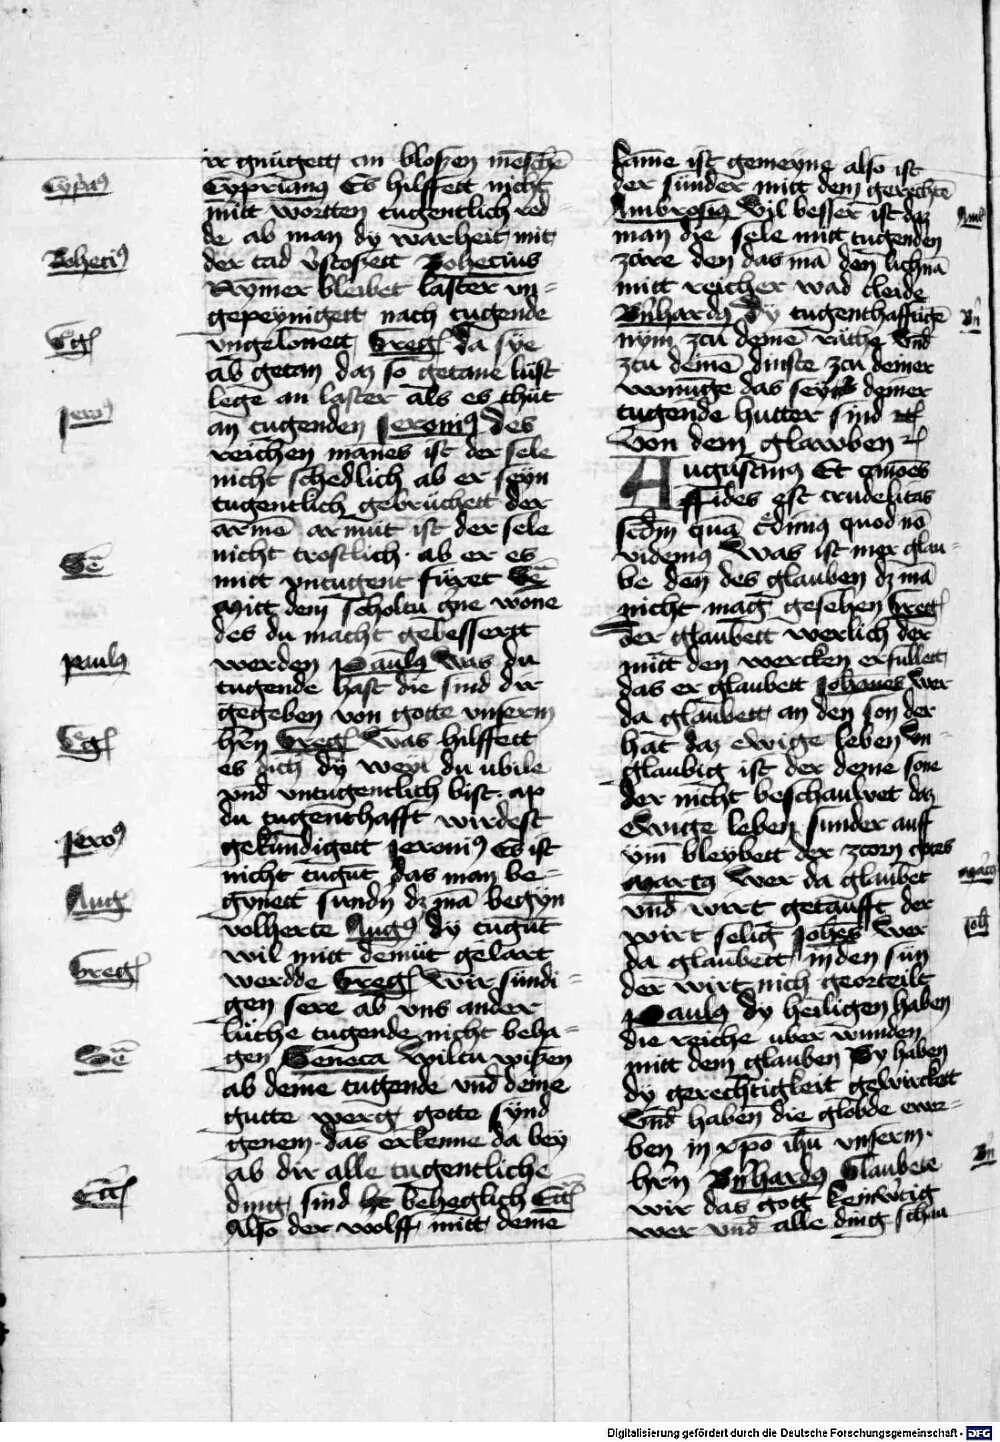 ir gnügett an bloßen mēschē
Cypriāus Es hilffett nicht
mitt wortten tugentlich red-
de ab man dy warheit mit
der tad v̄stoszett Bohecius
Rymer bleibet laster vn-
gepeynigett nach tugende
vngelonett Greg da sye
ab getan daz so getane lust
lege an laster als es thüt
an tugenden Jeroni⁹ des
reichen mānes ist der sele
nicht schedlich ab er seyn
tugentlich gebrüchett der
armē armüt ist der sele
nicht trostlich · ab er es
mitt vntugent füret Sē
Mitt dem scholtu wone
des du macht gebessertt
werden Paulus was du
tugende hast die sind dir
gegeben von gotte vnserm
hr̄n Greg Was hilffett
es dich dy weyl du ubile
vnd vntugentlich bist · ap
du tugenthafft wirdest
gekundigett Jeroni⁹ Es ist
nicht tugūt das man be-
gynett sundn dz mā begyn
volherte Aug⁹ dy tugūt
wil mitt demüt gelart
werdde Greg Wir sündi-
gen sere ab vns ander
lüthe tugende nicht beha-
gen Seneca Wiltu wißen
ab deine tugende vnd deine
gutte werg gotte synd
genem · das erkenne da bey
ab dir alle tugentliche
ding sind beheglich
Also der wolff mitt deme
same ist gemeyne also ist
der sünder mitt dem gerechtē
Ambrosi⁹ Vil besser ist daz
man die sele mitt tugenden
zcire den das mā den lichnā
mitt reicher wad cleide
Bn̄hard⁹ Dy tugenthafftigē
nym zcu deme räthe Vnd
zcu deinē dinste zcu deiner
wonuge das seyn deiner
tugende hutter sind
Von dem glawben
Augustin⁹ Et om̄es
ffides est crudelitas
scd̄m quā cred̄im⁹ quod nō
videm⁹ Was ist mer glau-
be den des glauben dz mā
nicht mag gesehen Greg
Der glaubett werlich der
mitt den wercken erfullett
das er glaubett Johanes Wer
da glaubett an den son der
hat daz ewige leben Vn-
glaubig ist der deme sone
der nicht beschauwet daz
Ewige leben sunder auff
ym bleybett der zcorn gotes
Marcus Wer da glaubet
vnd wirt getaufft der
wirt selig Johes Wer
da glaubett in den sūn
der wirt nich georteilt
Paulus dy heiligen haben
die reiche uber wunden
mitt dem glauben Sy haben
dy gerechtigkeit gewirckett
Vnd haben die globde ewer-
ben in xp̄o ih̄u vnserm ·
hr̄n Bn̄hard⁹ Glaubete
wir das gott keinw̄tig
wer vnd alle ding schau
Cypria⁹
Boheci⁹
Gg
Jero⁹
Sē
paul⁹
Gg
Jero⁹
Aug
Greg
Sē
Amb
Bn̄
marc⁹
Joh
Bn̄
Digitalisierung gefördert durch die Deutsche Forschungsgemeinschaft - DFG